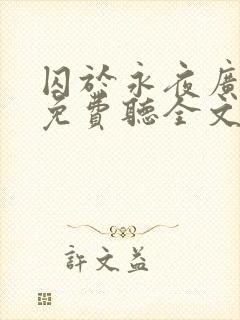 囚於永夜廣
免費聽全文
許文益